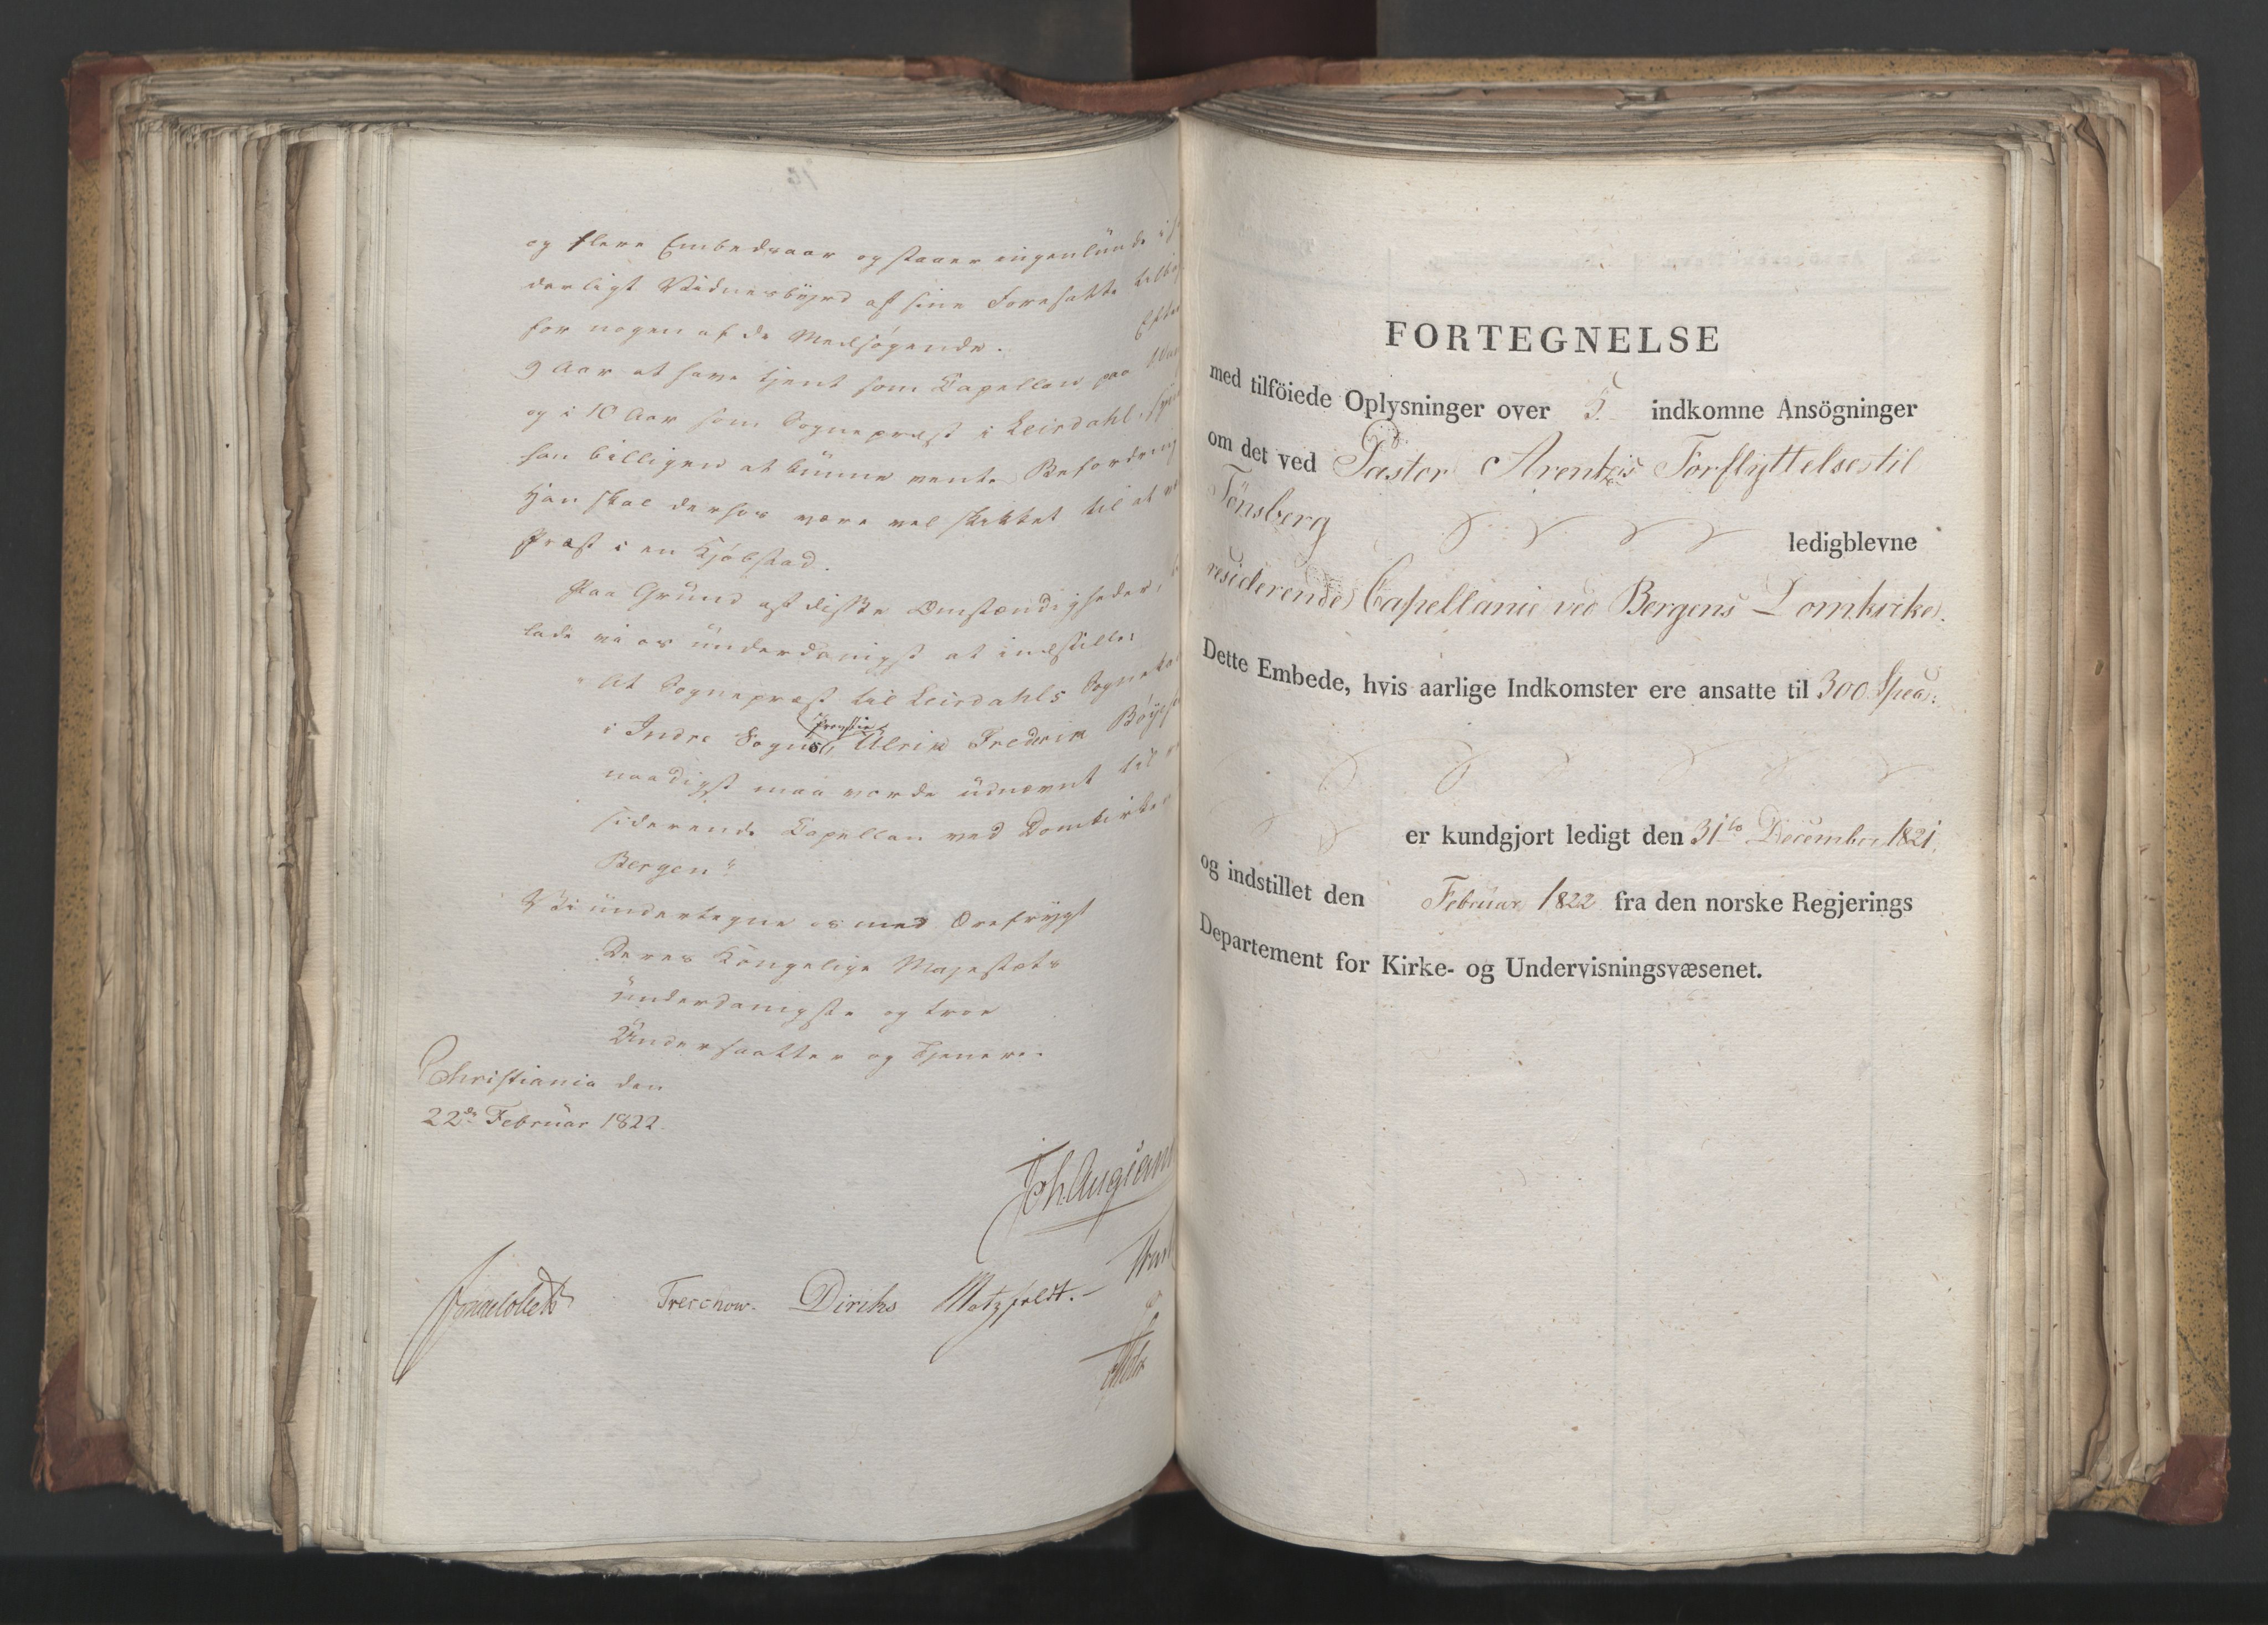 og flere Embedsaar og staaer ingenlunde i
derligt Vidnesbyrd af sine Foresatte
for nogen af de Medsøgende. Efter
9 Aar at have tjent som Capellan paa
og i 10 Aar som Sognepræst i Leirdahl, synes
han billigen at kunne vente Befordring
Han skal derhos være vel skikket til at
Præst i en Kjøbstad.
Paa Grund af disse Omstændigheder,
lade vi os underdanigst at indstille:
"At Sognepræst til Leirdahls Sognekald
i Indre Sogns Provstie, Ulrik Fredrik Bøye
naadigst maa vorde udnævnt til
siderende Capellan ved Domkirken
Bergen"
Vi undertegne os med Ærefrygt
Deres Kongelige Majestæts
underdanigste og troe
Undersaatter og Tjenere.
Christiania den
22de Februar 1822.
Treschow. Diriks Motzfeldt.
FORTEGNELSE
med tilföiede Oplysninger over 5. indkomne Ansögninger
om det ved Pastor Arentzis Forflyttelse til
Tönsberg ledigblevne
residerende Capellanie ved Bergens Domkirke.
Dette Embede, hvis aarlige Indkomster ere ansatte til 300 Spd:
er kundgjort ledigt den 31te December 1821.
og indstillet den Februar 1822 fra den norske Regjerings
Departement for Kirke- og Undervisningsvæsenet.